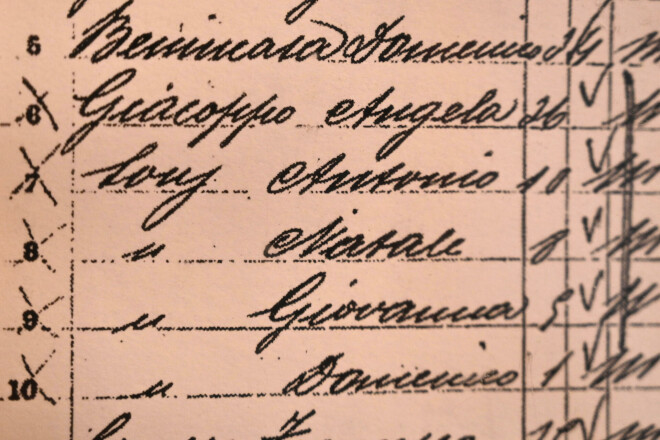 5 Beninasa Domenico 34 m
6 Giacoppo Angela 26 m
7 Long Antonio 10 m
8 " Natale 8 m
9 " Giovanna 5
10 " Domenico 1 m